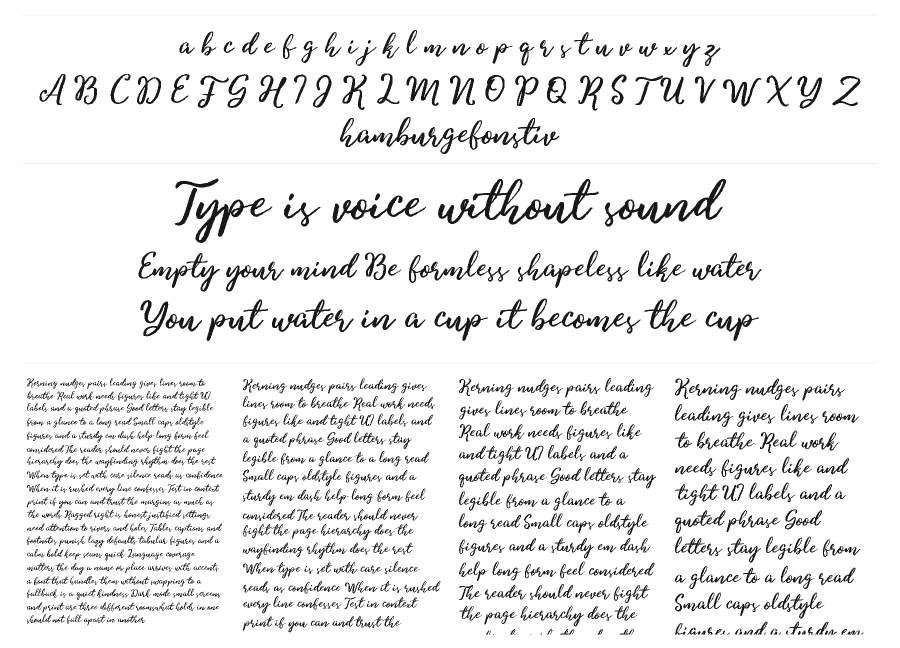 a b c d e f g h i j k l m n o p q r s t u v w x y z
A B C D E F G H I J K L M N O P Q R S T U V W X Y Z
hamburgefonstiv
Type is voice without sound
Empty your mind Be formless shapeless like water
You put water in a cup it becomes the cup
Kerning nudges pairs leading gives lines room to
breathe Real work needs figures like and tight UI
labels and a quoted phrase Good letters stay legible
from a glance to a long read Small caps oldstyle
figures and a sturdy em dash help long form feel
considered The reader should never fight the page
hierarchy does the wayfinding rhythm does the rest
When type is set with care silence reads as confidence
When it is rushed every line confesses Test in context
print if you can and trust the margins as much as
the words Ragged right is honest justified settings
need attention to rivers and holes Tables captions and
footnotes punish lazy defaults tabular figures and a
calm bold keep scans quick Language coverage
matters the day a name or place arrives with accents
a font that handles them without swapping to a
fallback is a quiet kindness Dark mode small screens
and print are three different rooms what holds in one
should not fall apart in another
Kerning nudges pairs leading gives
lines room to breathe Real work needs
figures like and tight UI labels and
a quoted phrase Good letters stay
legible from a glance to a long read
Small caps oldstyle figures and a
sturdy em dash help long form feel
considered The reader should never
fight the page hierarchy does the
wayfinding rhythm does the rest
When type is set with care silence
reads as confidence When it is rushed
every line confesses Test in context
print if you can and trust the
Kerning nudges pairs leading
gives lines room to breathe
Real work needs figures like
and tight UI labels and a
quoted phrase Good letters stay
legible from a glance to a
long read Small caps oldstyle
figures and a sturdy em dash
help long form feel considered
The reader should never fight
the page hierarchy does the
Kerning nudges pairs
leading gives lines room
to breathe Real work
needs figures like and
tight UI labels and a
quoted phrase Good
letters stay legible from
a glance to a long read
Small caps oldstyle
figures and a sturdy em